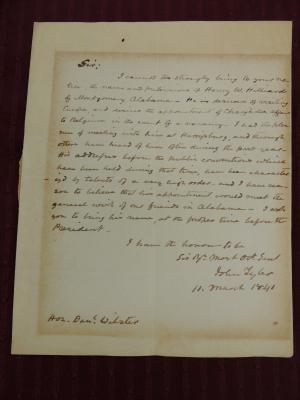 Sir;
I cannot too strongly bring to your no-
tice the name and pretensions of Henry W. Hilliard
of Montgomery Alabama – He is desirous of visiting
Europe and desires the appointment of Chargé des Affairs
to Belgium in the event of a vacancy. I had the plea-
sure of meeting with him at Harrisburg, and through
others have heard of him often during the past year.
His addresses before the public conventions which
have been held during that time, have been character-
ized by talents of a very high order, and I have rea-
son to believe that his appointment would meet the
general wish of our friends in Alabama – I ask
you to bring his name at the proper time before the
President.
I have the honour to be
Sir Yr. Most Obt. Servt
John Tyler
10. March 1841
Hon. Danl. Webster